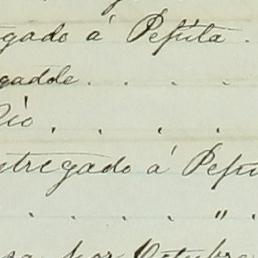 egado á Pepita .
gadole . . . .
Rio . . . .
ntregado á Pepi
. . . . . " .
sa por Octubre